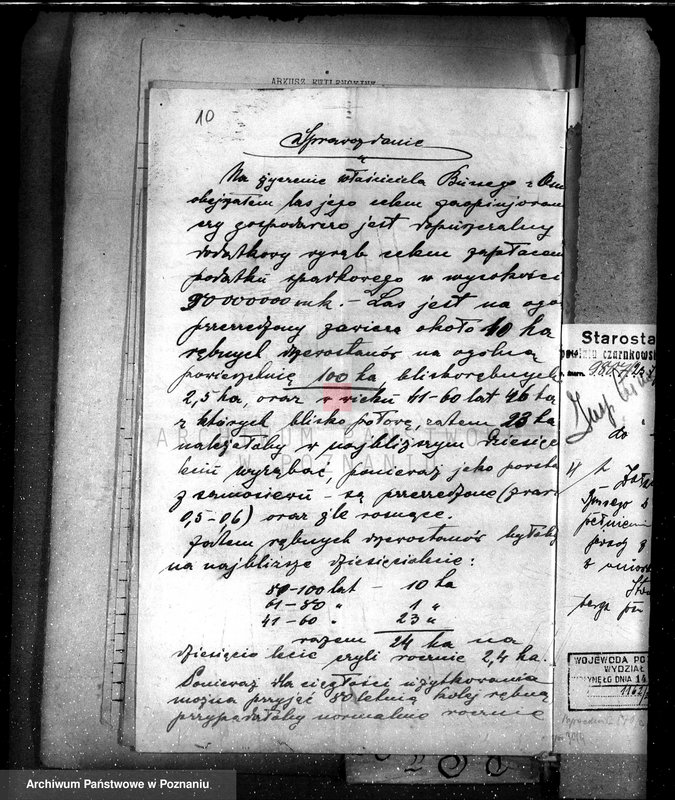 ARKUSZ EWIDENCYJNY
10
Sprawozdanie
Na życzenie właściciela
obejrzałem las jego celem zaopinjowan
czy gospodarczo jest dopuszczalny
dodatkowy wyrąb celem zapłacen
podatku spadkowego w wysokości
90000000 mk. – Las jest na ogół
przerzedzony zawiera około 10 ha
rębnych drzewostanów na ogólną
powierzchnię 100 ha bliskorębnych
2,5 ha, oraz w wieku 41-60 lat 46 ha
z których blisko połowę, zatem 23 ha
należałoby w najbliższym dziesięcio
leciu wyrąbać, ponieważ jako
z samosiewu – są przerzedzone (zwar
0,5-0,6) oraz źle rosnące.
Zatem rębnych drzewostanów byłoby
na najbliższe dziesięciolecie:
80-100 lat – 10 ha
61-80 " 1 "
41-60 " 23 "
razem 24 ha na
dziesięciolecie czyli rocznie 2,4 ha.
Ponieważ dla ciągłości użytkowania
można przyjąć 80 letnią kolej rębną
przypadałoby normalnie rocznie
Starosta
powiatu czarnkowsk
do
WOJEWODA PO
WYDZIAŁ
WPŁYNĘŁO DNIA 14
1162/
ARCHIWUM PAŃSTWOWE
W POZNANIU
Archiwum Państwowe w Poznaniu